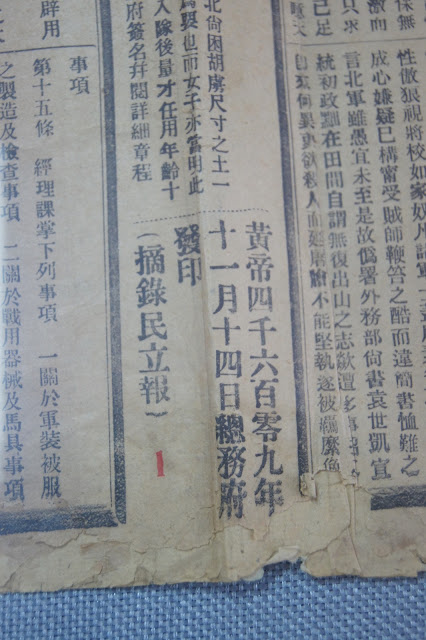 保無
激而
只求
已足
性傲狠視將校如家奴凡諸軍
成心嫌疑已構審受賊師鞭笞之酷而違簡書恤難之
言北軍雖愚宜未至是故偽署外務部尚書袁世凱宣
統初政黜在田間自謂無復出山之志歟
何異更欲殺人而
不能堅執遂被羈縻偽
北尙困胡虜尺寸之土一
異也而女子亦當明此
入隊後量才任用年齡十
府簽名幷閱詳細章程
黃帝四千六百零九年
十一月十四日總務府
發印
(摘錄民立報)
1
辟用
事項
第十五條 經理課掌下列事項 一關於軍裝被服
之製造及檢查事項 二關於戰用器械及馬具事項